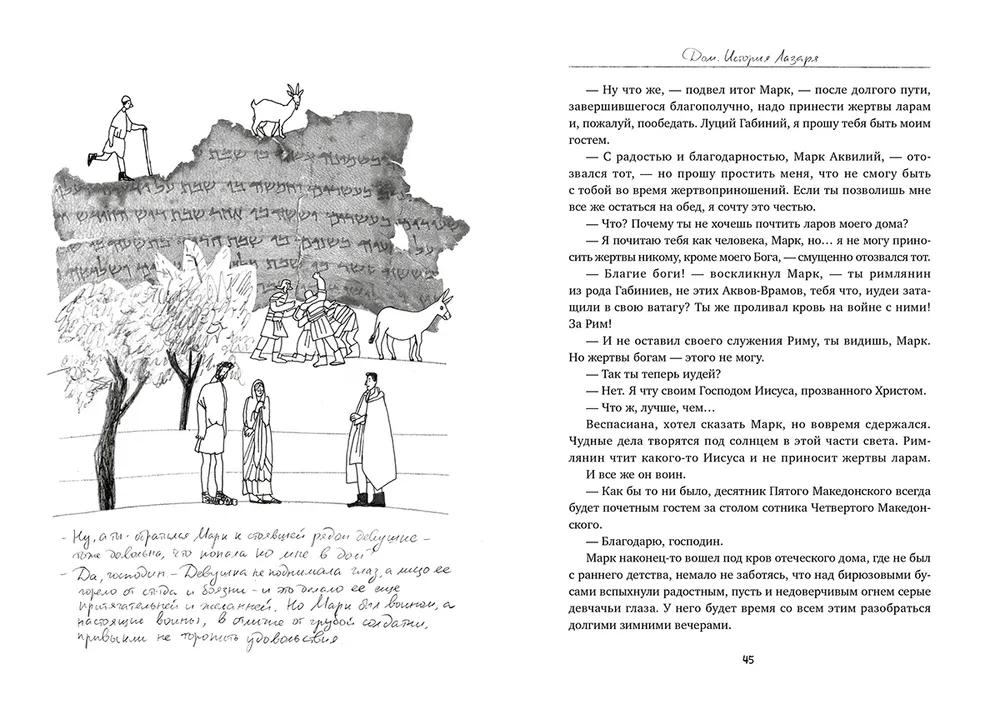 - Ну, а ты - обратился Марк к стоявшей рядом девушке -
тоже довольна, что попала ко мне в дом?
- Да, господин - Девушка не поднимала глаз, а лицо ее
горело от стыда и боязни - и это делало ее еще
притягательней и желанней. Но Марк был воином, а
настоящие воины, в отличие от грубой солдатни,
привыкли не торопить удовольствия
Дом. История Лазаря
— Ну что же, — подвел итог Марк, — после долгого пути,
завершившегося благополучно, надо принести жертвы ларам
и, пожалуй, пообедать. Луций Габиний, я прошу тебя быть моим
гостем.
— С радостью и благодарностью, Марк Аквилий, — ото-
звался тот, — но прошу простить меня, что не смогу быть
с тобой во время жертвоприношений. Если ты позволишь мне
все же остаться на обед, я сочту это честью.
— Что? Почему ты не хочешь почтить ларов моего дома?
— Я почитаю тебя как человека, Марк, но… я не могу прино-
сить жертвы никому, кроме моего Бога, — смущенно отозвался тот.
— Благие боги! — воскликнул Марк, — ты римлянин
из рода Габиниев, не этих Аквов-Врамов, тебя что, иудеи зата-
щили в свою ватагу? Ты же проливал кровь на войне с ними!
За Рим!
— И не оставил своего служения Риму, ты видишь, Марк.
Но жертвы богам — этого не могу.
— Так ты теперь иудей?
— Нет. Я чту своим Господом Иисуса, прозванного Христом.
— Что ж, лучше, чем…
Веспасиана, хотел сказать Марк, но вовремя сдержался.
Чудные дела творятся под солнцем в этой части света. Рим-
лянин чтит какого-то Иисуса и не приносит жертвы ларам.
И все же он воин.
— Как бы то ни было, десятник Пятого Македонского всегда
будет почетным гостем за столом сотника Четвертого Македон-
ского.
— Благодарю, господин.
Марк наконец-то вошел под кров отеческого дома, где не был
с раннего детства, немало не заботясь, что над бирюзовыми бу-
сами вспыхнули радостным, пусть и недоверчивым огнем серые
девчачьи глаза. У него будет время со всем этим разобраться
долгими зимними вечерами.
45